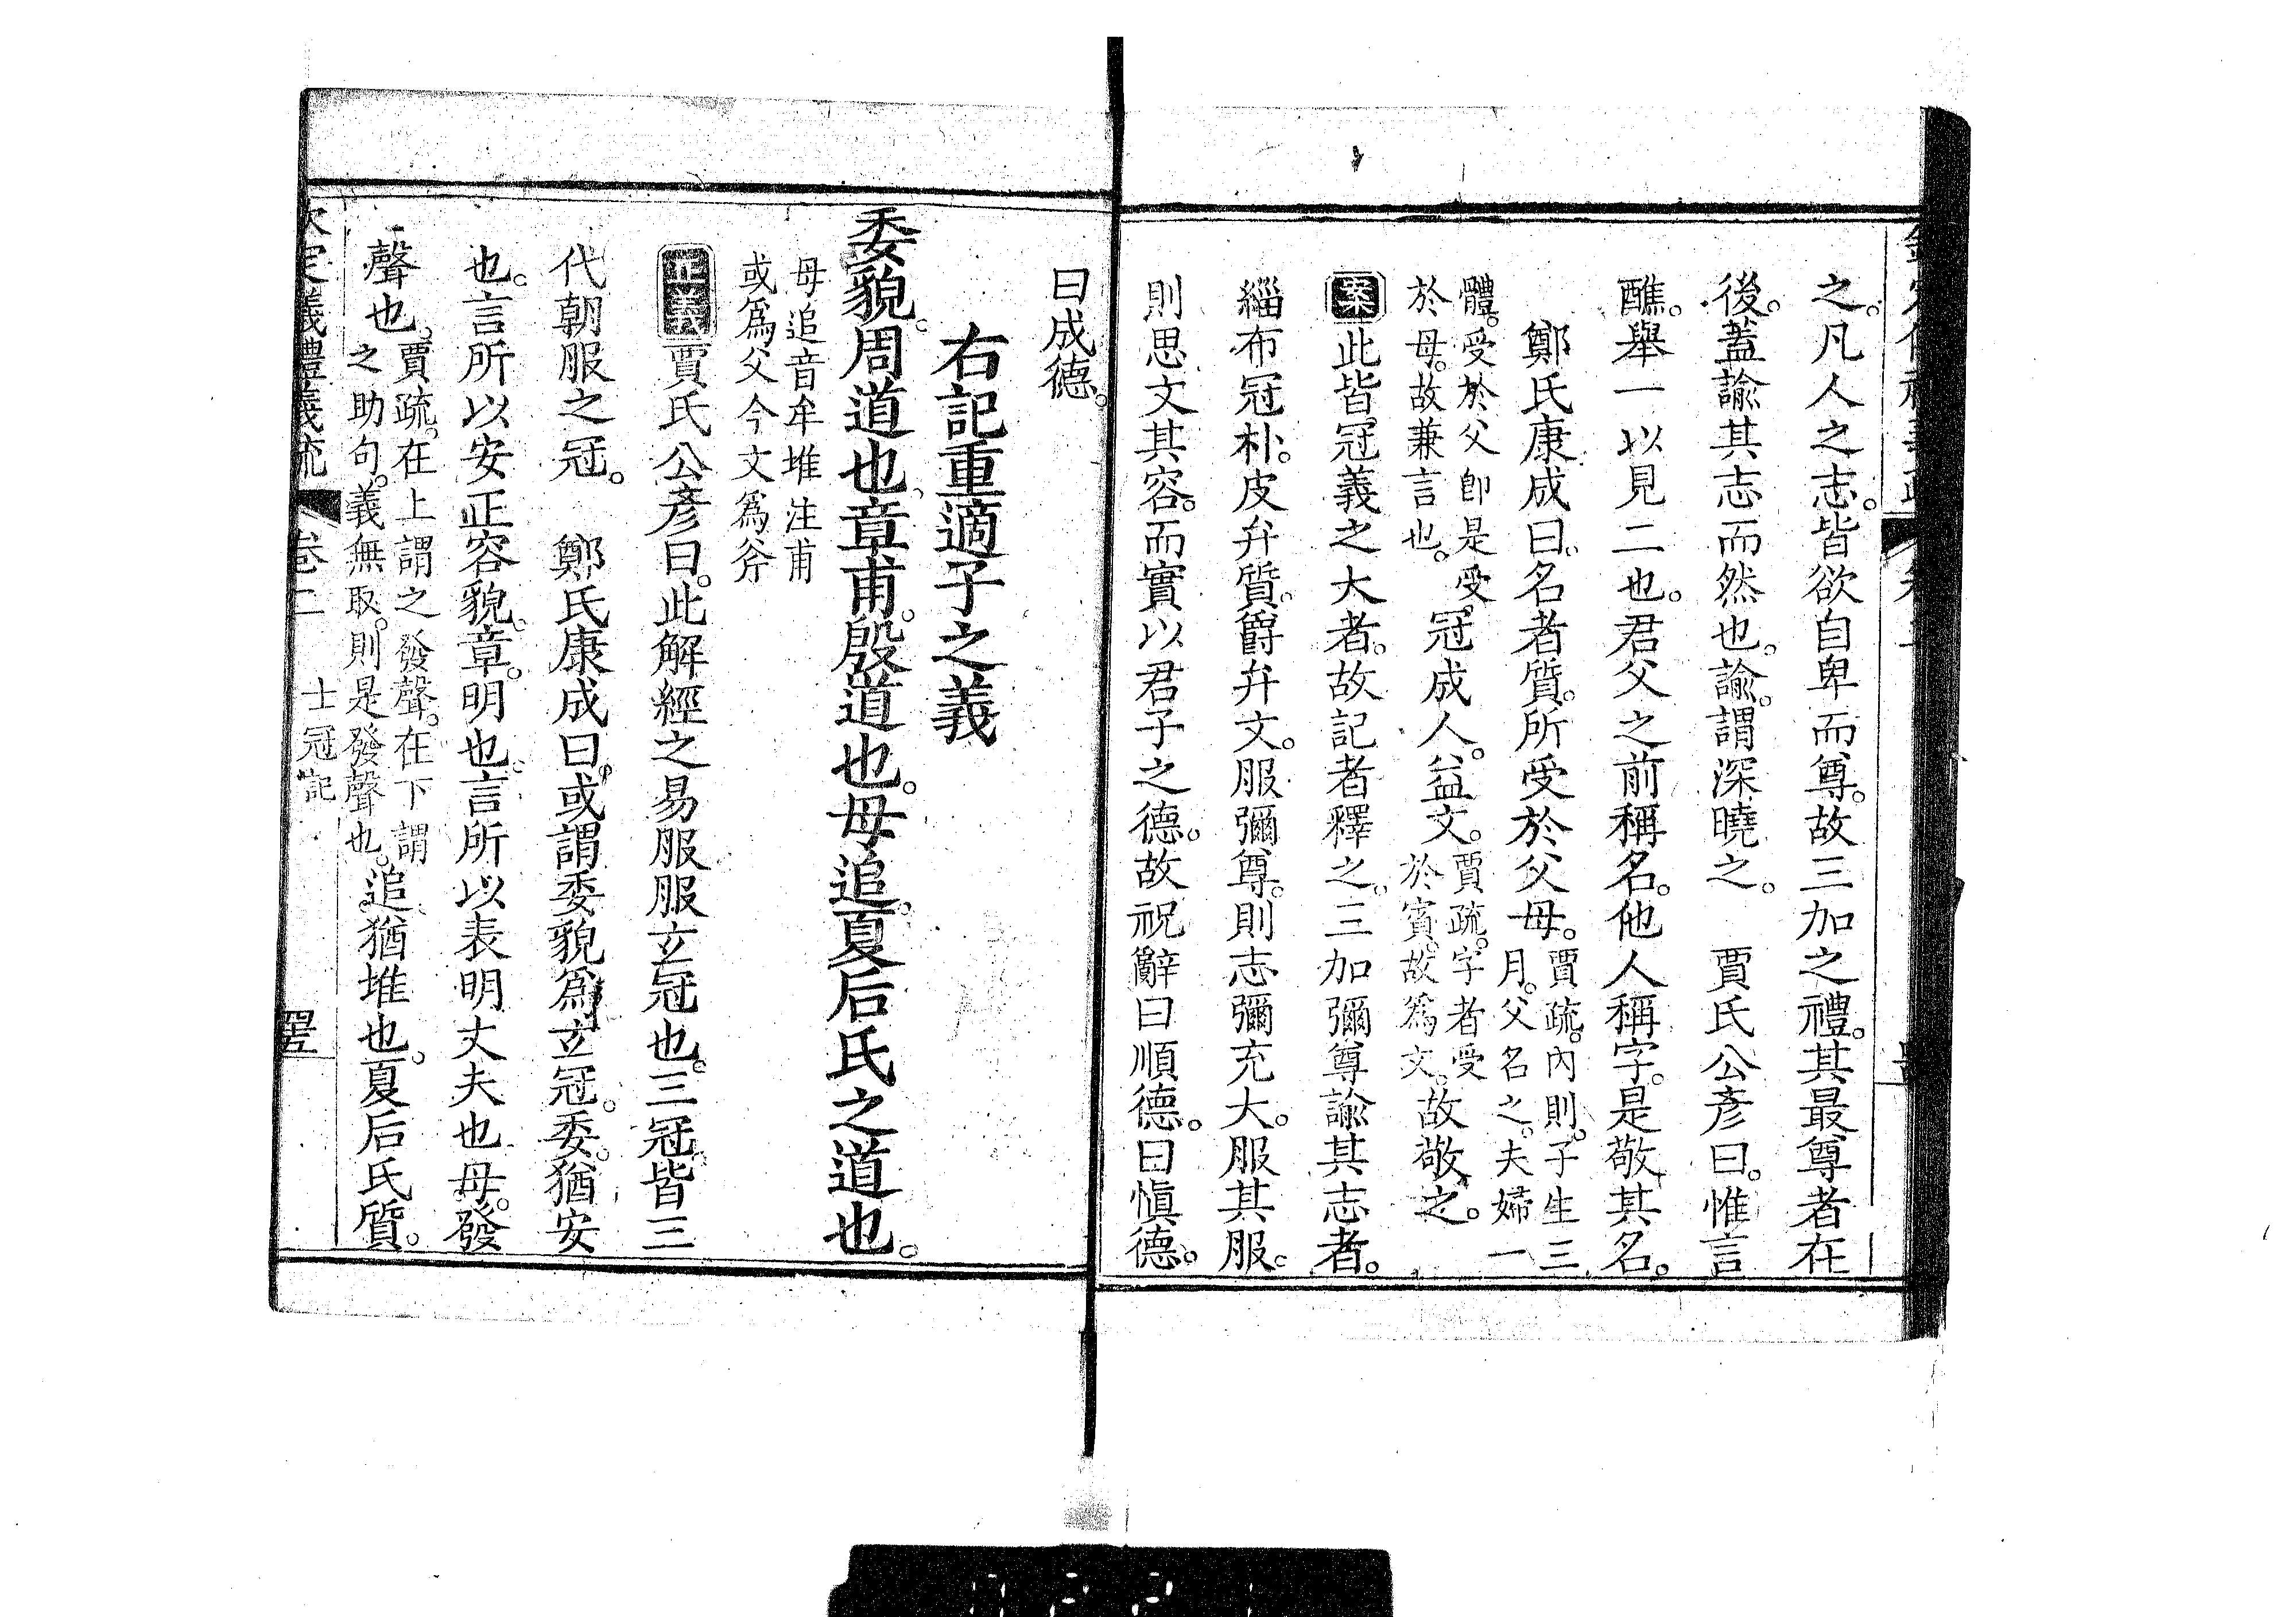 之。凡人之志。皆欲自卑而尊。故三加之禮。其最尊者在
後。蓋諭其志而然也。諭。謂深曉之。　賈氏公彥曰。惟言
醮。舉一以見二也。君父之前稱名。他人稱字。是敬其名。
鄭氏康成曰。名者質。所受於父母。賈疏。內則。子生三
月。父名之。夫婦一
體。受於父卽是受
於母。故兼言也。冠成人。益文。賈疏。字者受
於賓。故為文。故敬之。
案此皆冠義之大者。故記者釋之。三加彌尊諭其志者。
緇布冠朴。皮弁質。爵弁文。服彌尊。則志彌充大。服其服。
則思文其容。而實以君子之德。故祝辭曰順德。曰愼德。
曰成德。
右記重適子之義
委貌。周道也。章甫。殷道也。毋追。夏后氏之道也。
毋追音牟堆注甫
或爲父今文爲斧
正義賈氏公彥曰。此解經之易服服玄冠也。三冠。皆三
代朝服之冠。　鄭氏康成曰。或謂委貌爲玄冠。委。猶安
也。言所以安正容貌。章。明也。言所以表明丈夫也。毋。發
聲也。賈疏。在上謂之發聲。在下謂
之助句。義無取。則是發聲也。追。猶堆也。夏后氏質。
欽定儀禮義疏　卷二　士冠記